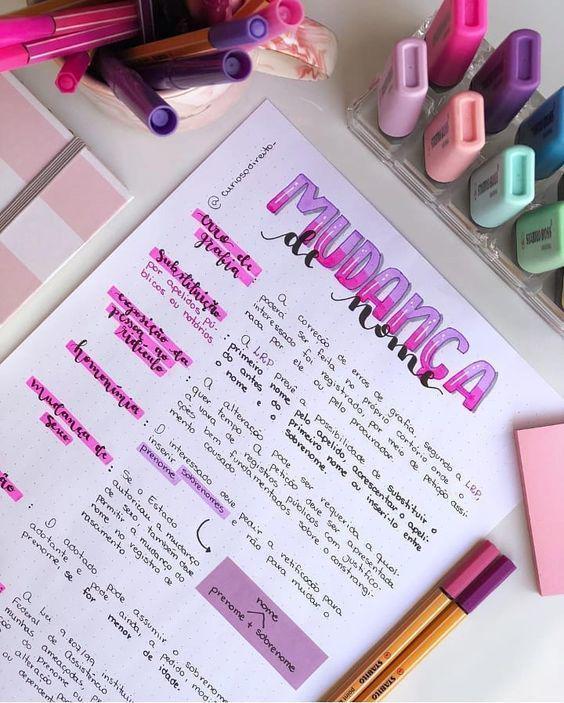 @curiosodireito_
MUDANÇA
de nome
erro de
grafia
A correção de erros de grafia, segundo a LRP,
poderá ser feita no próprio cartório onde o
interessado foi registrado, por meio de petição assi
nada por ele ou pelo procurador.
Substituição
por apelidos pú-
blicos ou notórios
: A LRP prevê a possibilidade de substituir o
primeiro nome pelo apelido, acrescentar o apeli-
do antes do primeiro nome ou inseri-lo entre
o nome e o sobrenome.
exposição da
pessoa ao
ridículo
: A alteração pode ser requerida a qual
quer tempo. A petição deve ser apresentada
à vara de registros públicos com justifica-
ções bem fundamentadas sobre o constrangi
mento causado.
homonímia
: O interessado deve pedir a retificação para
inserir sobrenomes e não para mudar o
prenome
mudança de
sexo
: Se o Estado
autorizou a mudança
de sexo, também deve
permitir a mudança do
nome no registro de
nascimento.
nome
prenome + sobrenome
ção
: O adotado pode assumir o sobrenome
adotante e pode ainda, a pedido, mod
prenome se for menor de idade.
A Lei 9.807/99 instituiu
Federal de Assistência
munhas ameaçadas,
do prenome
ou alteração
dependent
STABILO BOSS
STABILO
STABILO
point